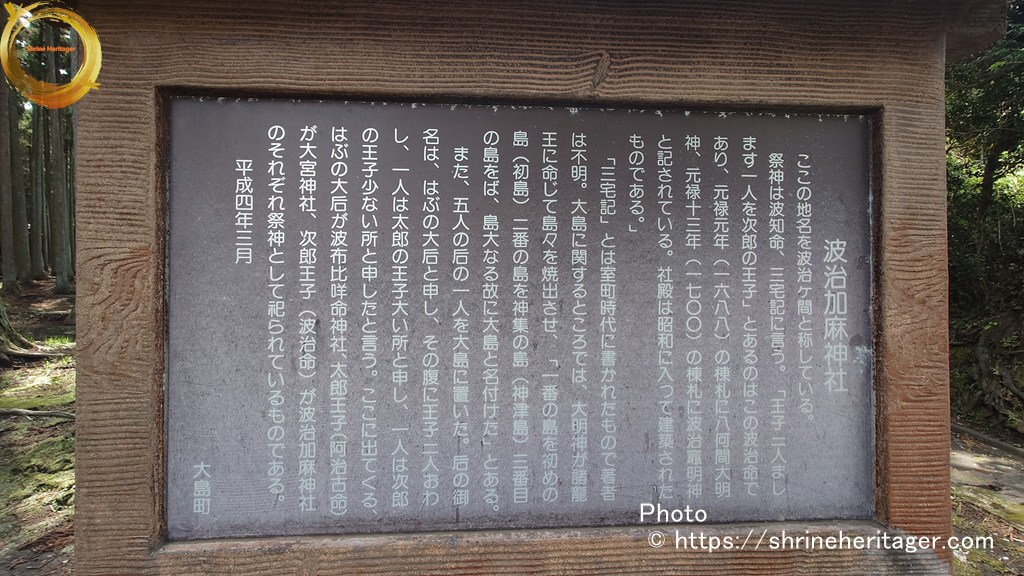 波治加麻神社
ここの地名を波治ケ間と称している。
祭神は波知命、三宅記に言う。「王子二人まし
ます一人を次郎の王子」とあるのはこの波治命で
あり、元禄元年(一六八八)の棟札に八何間大明
神、元禄十三年(一七〇〇)の棟札に波治竃明神
と記されている。社殿は昭和に入つて建築された
ものである。」
「三宅記」とは室町時代に書かれたもので著者
は不明。大島に関するところでは、大明神が諸龍
王に命じて島々を焼出させ、「一番の島を初めの
島(初島)二番の島を神集の島(神津島)三番目
の島をば、島大なる故に大島と名付けた」とある。
また、五人の后の一人を大島に置いた。后の御
名は、はぶの大后と申し、その腹に王子二人おわ
し、一人は太郎の王子大い所と申し、一人は次郎
の王子少ない所と申したと言う。ここに出てくる、
はぶの大后が波布比咩命神社、太郎王子(阿治古命)
が大宮神社、次郎王子(波治命)が波治加麻神社
のそれぞれ祭神として祀られているものである。
平成四年三月
大島町
Shrine Heritager
Photo
© https://shrineheritager.com